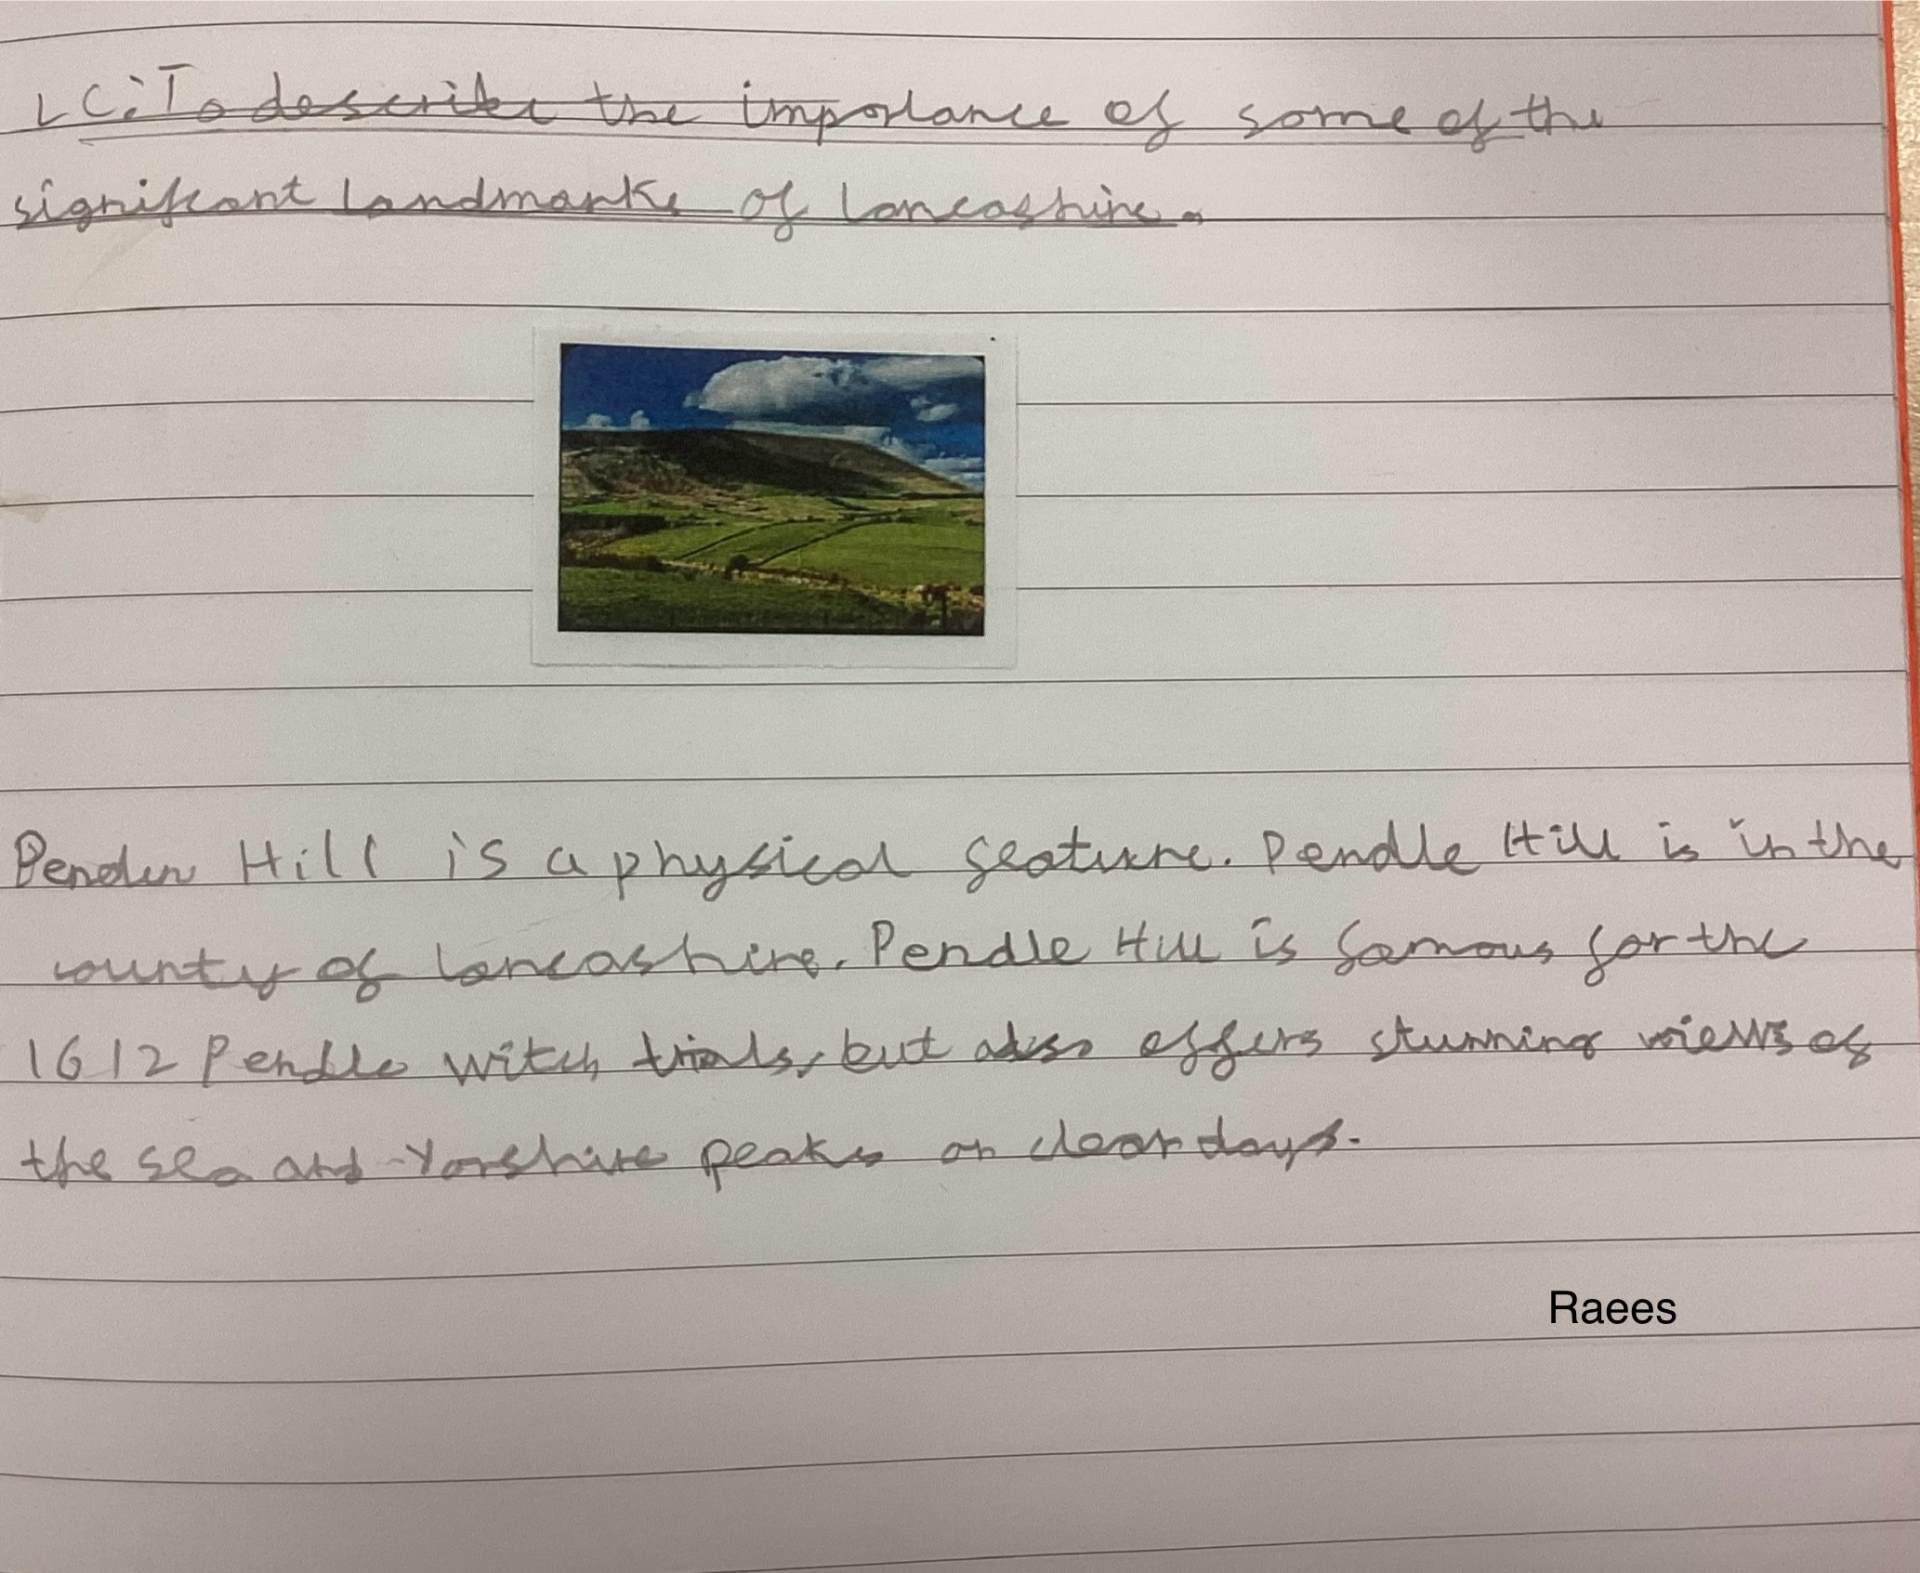 LC: To describe the importance of some of the
significant landmarks of Lancashire.
Hill is a physical feature. Pendle Hill is in the
county of Lancashire. Pendle Hill is famous for the
1612 Pendle witch trials, but also offers stunning views of
the sea and Yorshire peaks on clear days.
Raees